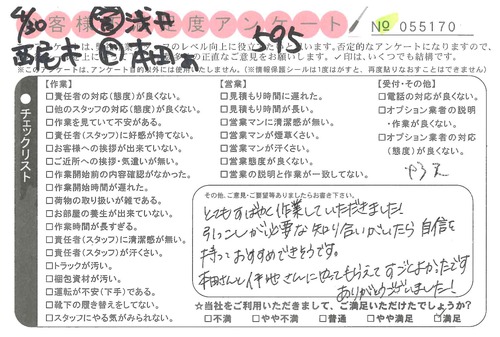 4/30 ㊢ 浅井
お客様満足度アンケート
№ 055170
西尾市 595
レベル向上に役立
います。否定的なアンケートになりますので、
直なご意見をお願いします。✓印は、いくつでも結構です。
※このアンケートは、アンケート目的以外には使用いたしません。(※情報保護シールは1度はがすと、再度貼りなおすことはできません)
チェックリスト
【作業】
□責任者の対応(態度)が良くない。
□他のスタッフの対応(態度)が良くない。
□作業を見ていて不安がある。
□責任者(スタッフ)に好感が持てない。
□お客様への挨拶が出来ていない。
□ご近所への挨拶・気遣いが無い。
□作業開始前の内容確認がなかった。
□作業開始時間が遅れた。
□荷物の取り扱いが雑である。
□お部屋の養生が出来ていない。
□作業時間が長すぎる。
□責任者(スタッフ)に清潔感が無い。
□責任者(スタッフ)が汗くさい。
□トラックが汚い。
□梱包資材が汚い。
□運転が不安(下手)である。
□靴下の履き替えをしてない。
□スタッフにやる気がみられない。
【営業】
□見積もり時間に遅れた。
□見積もり時間が長い。
□営業マンに清潔感が無い。
□営業マンが煙草くさい。
□営業マンが汗くさい。
□営業態度が良くない。
□営業の説明と作業が一致してない。
【受付・その他】
□電話の対応が良くない。
□オプション業者の説明
・作業が良くない。
□オプション業者の対応
(態度)が良くない。
その他、ご意見・ご要望等ありましたらお書き下さい。
とてもすばやく作業していただきました!
引っこしが必要な知り合いがいたら自信を
持っておすすめできそうです。
本田さんと伊地さんにやってもらえてすごくよかったです
ありがとうございました!
☆当社をご利用いただきまして、ご満足いただけたでしょうか?
□不満 □やや不満 □普通 □やや満足 ☑満足